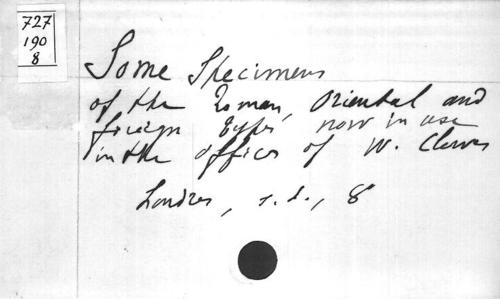 727
190
8
Some Specimens
of the Roman, Oriental and
foreign types, now in use
in the office of W. Clowes
Londres, s.d., 8°